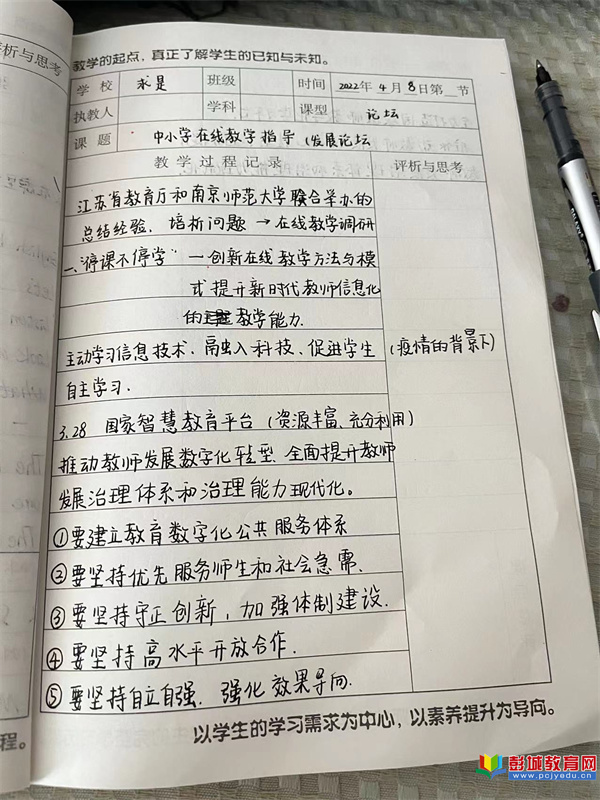 教学的起点，真正了解学生的已知与未知。
评析与思考
学校 求是 班级 时间 2022年4月8日第 节
执教人 学科 课型 论坛
课题 中小学在线教学指导 发展论坛
教学过程记录 评析与思考
江苏省教育厅和南京师范大学联合举办的
总结经验、培析问题 → 在线教学调研
一、"停课不停学" — 创新在线教学方法与模
式提升新时代教师信息化
的教学能力.
主动学习信息技术、融入科技、促进学生 (疫情的背景下)
自主学习.
3.28 国家智慧教育平台（资源丰富、充分利用）
推动教师发展数字化转型、全面提升教师
发展治理体系和治理能力现代化。
①要建立教育数字化公共服务体系
②要坚持优先服务师生和社会急需、
③要坚持守正创新，加强体制建设.
④要坚持高水平开放合作.
⑤要坚持自立自强、强化效果导向.
以学生的学习需求为中心，以素养提升为导向。
程。
彭城教育网
www.pcjyedu.cn